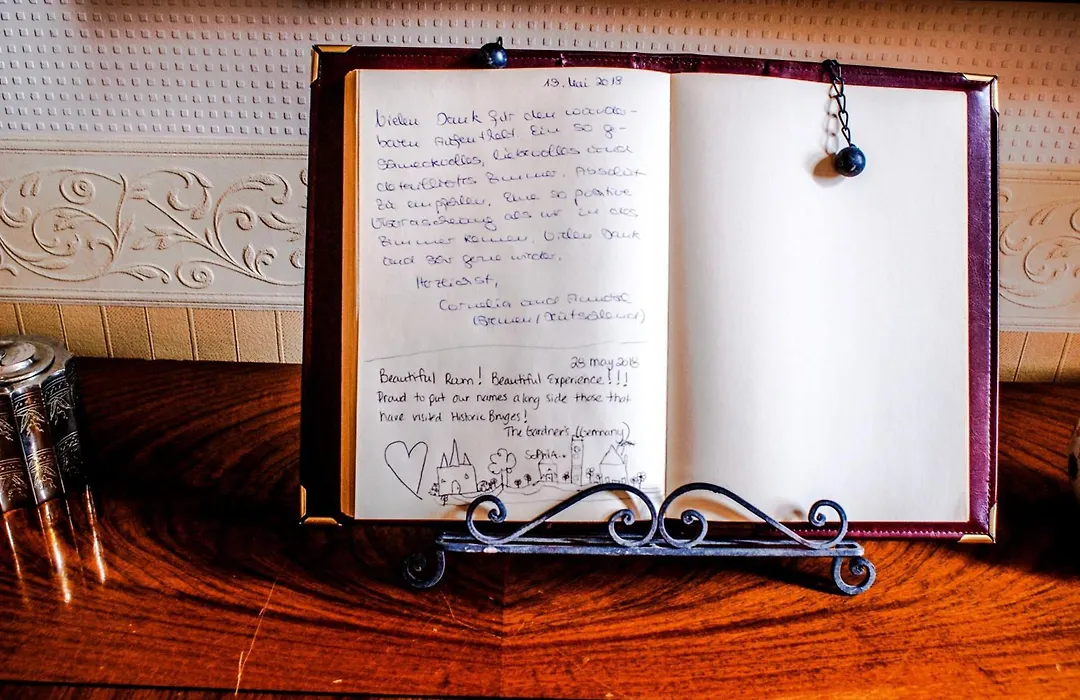 13. Mai 2018
Vielen Dank für den wunder-
baren Aufenthalt. Ein so ge-
schmackvolles, liebevolles und
detailliertes Zimmer. Absolut
zu empfehlen. Eine so positive
Überraschung als wir in das
Zimmer kamen. Vielen Dank
und sehr gerne wieder.
Herzlichst,
Cornelia und
(Bremen/Deutschland)
28 may 2018
Beautiful Room! Beautiful Experience!!!
Proud to put our names along side those that
have visited Historic Bruges!
The Gardner's (Germany)
Sophia